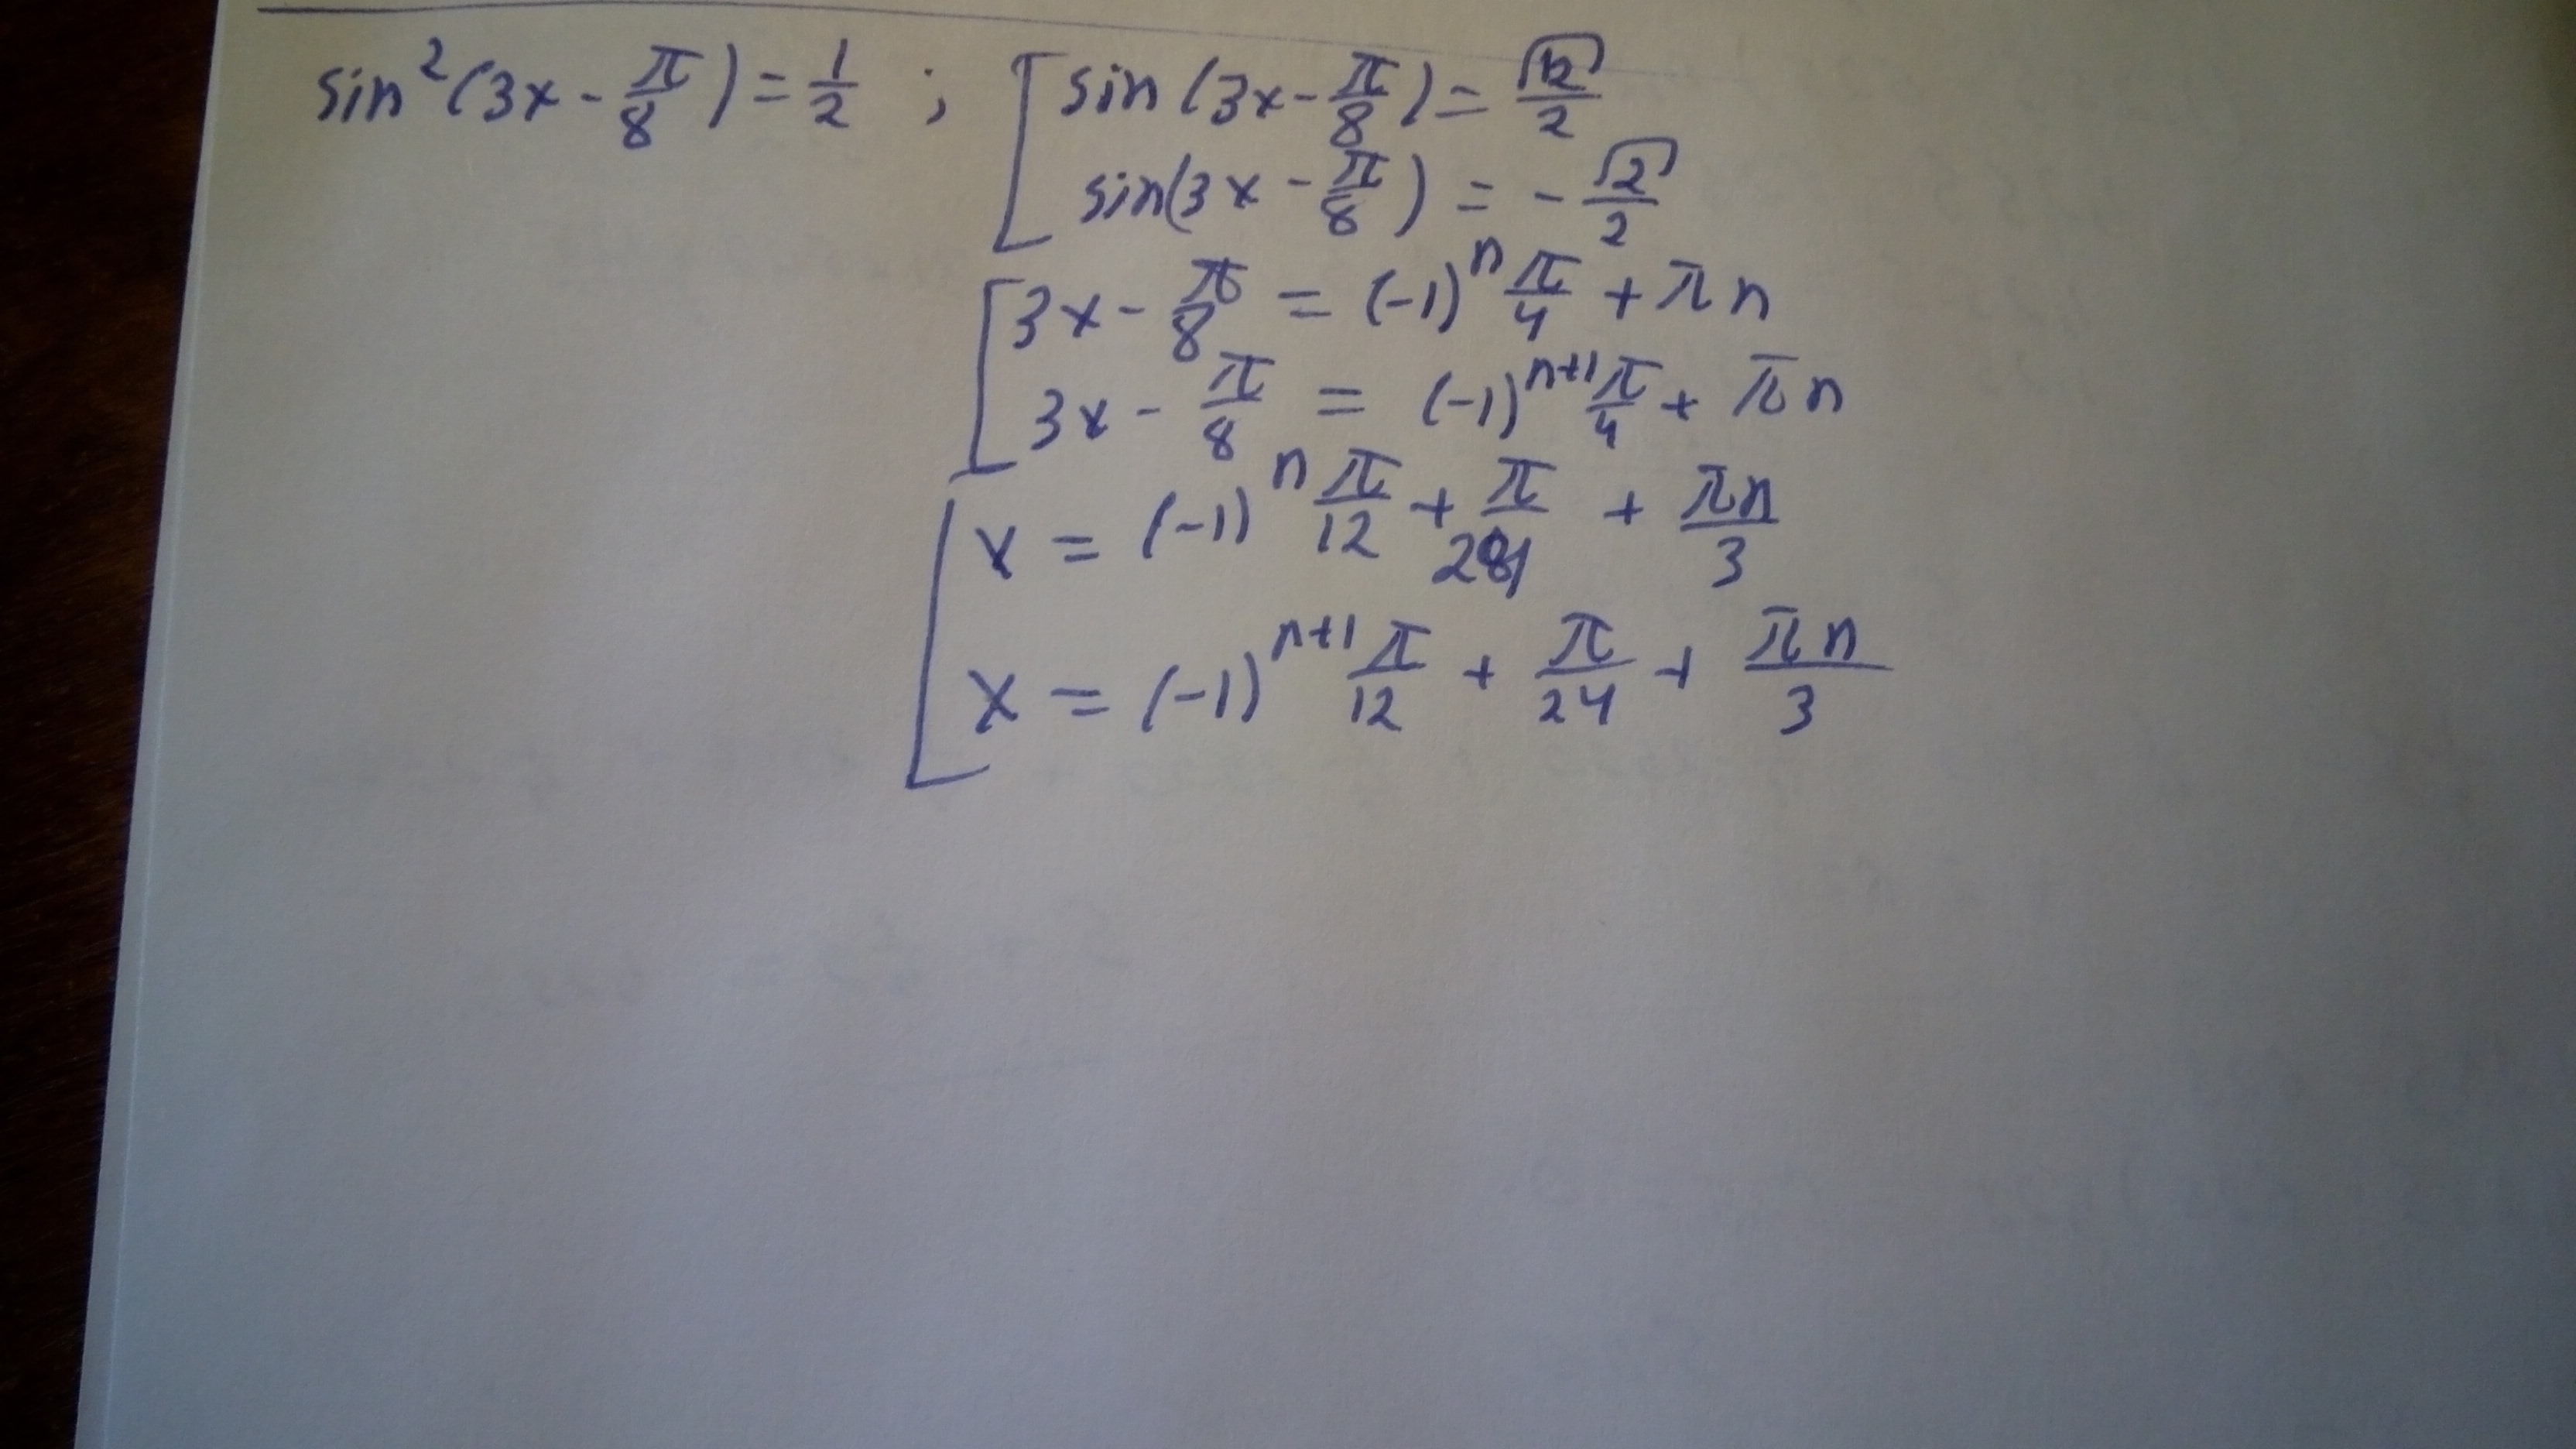 sin²(3x - π/8) = 1/2 ; [ sin(3x - π/8) = √2/2
sin(3x - π/8) = - √2/2
[ 3x - π/8 = (-1)ⁿ π/4 + πn
3x - π/8 = (-1)ⁿ⁺¹ π/4 + πn
[ x = (-1)ⁿ π/12 + π/24 + πn/3
x = (-1)ⁿ⁺¹ π/12 + π/24 + πn/3